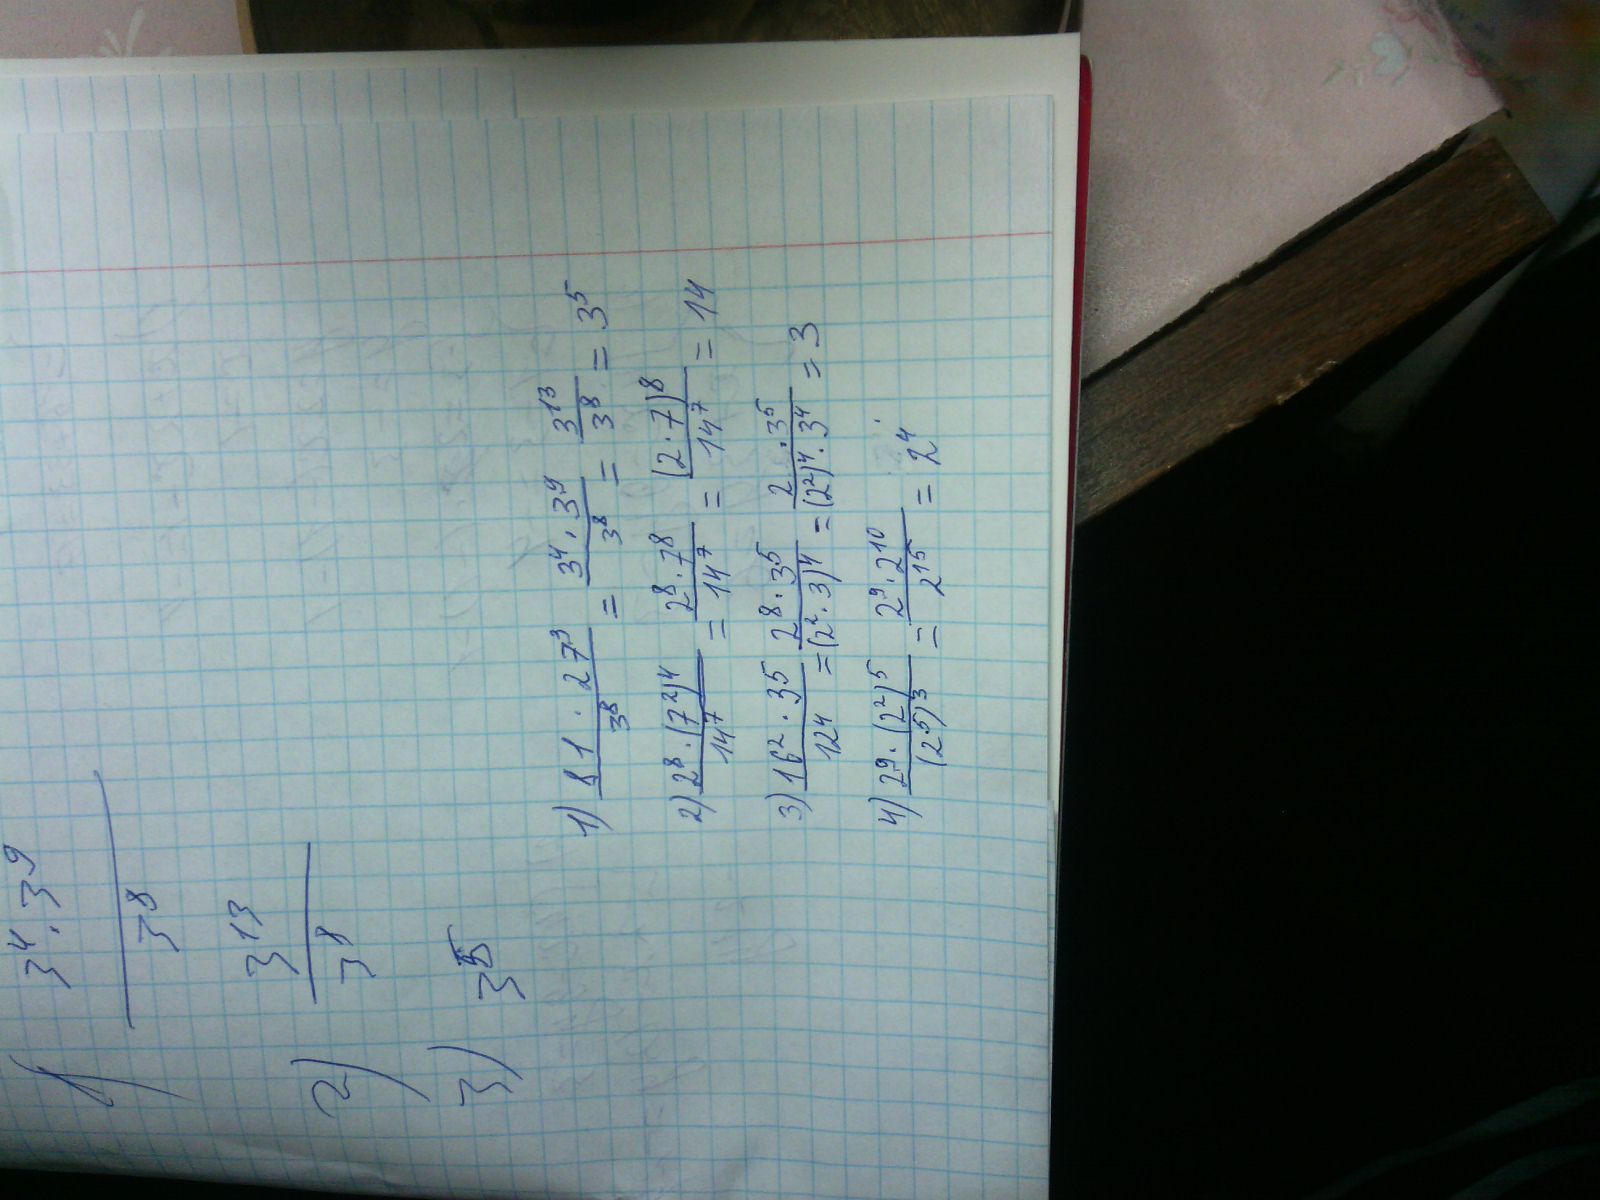 1) 3⁴·3⁹/3⁸
2) 3¹³/3⁸
3) 3⁵
1) 81·27³/3⁸ = 3⁴·3⁹/3⁸ = 3¹³/3⁸ = 3⁵
2) 2⁸·(7²)⁴/14⁷ = 2⁸·7⁸/14⁷ = (2·7)⁸/14⁷ = 14
3) 16²·3⁵/12⁴ = 2⁸·3⁵/(2²·3)⁴ = 2·3⁵/(2²)⁴·3⁴ = 3
4) 2⁹·(2²)⁵/(2⁵)³ = 2⁹·2¹⁰/2¹⁵ = 2⁴